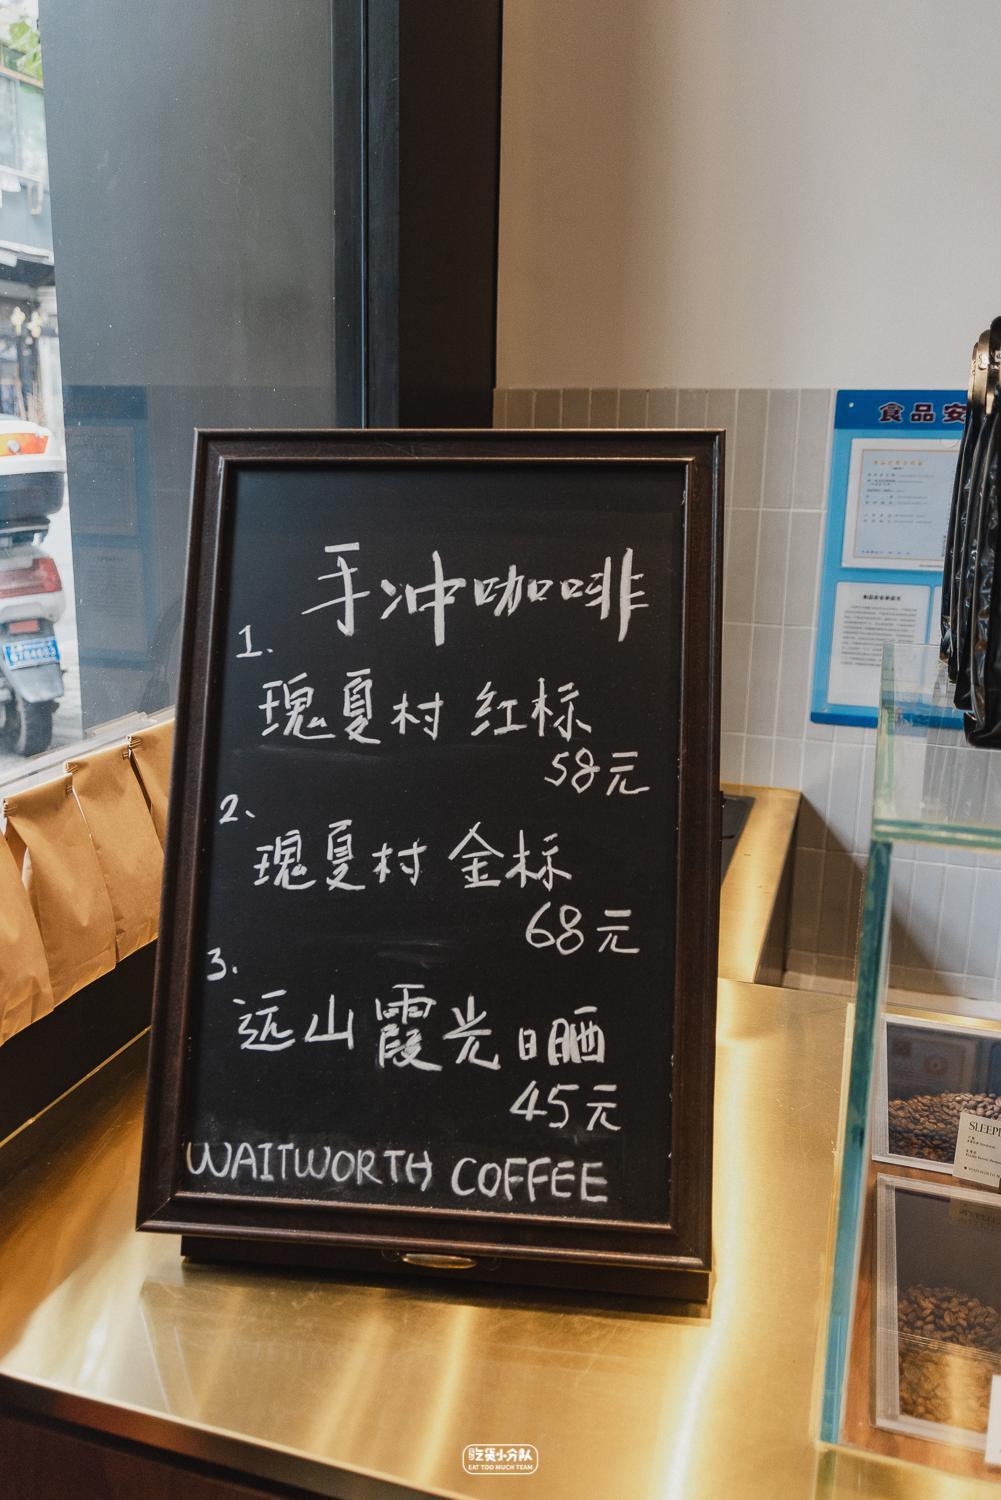 手冲咖啡
1.
瑰夏村 红标
58元
2、
瑰夏村 金标
68元
3.
远山霞光日晒
45元
WAITWORTH COFFEE
食品安
SLEEPI
吃货小分队
EAT TOO MUCH TEAM